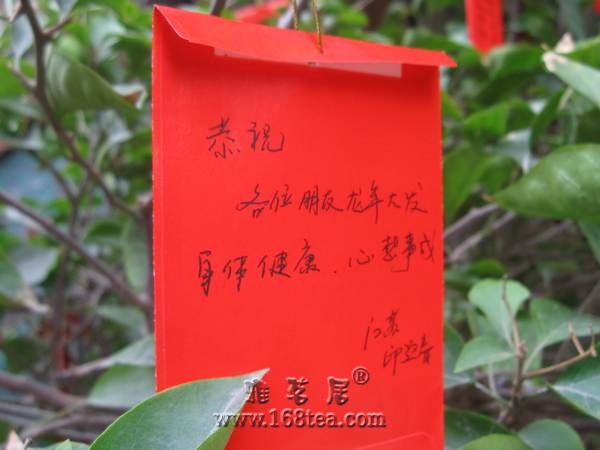 恭祝
各位朋友龙年大发
身体健康、心想事成
江苏
雅茗居®
www.168tea.com